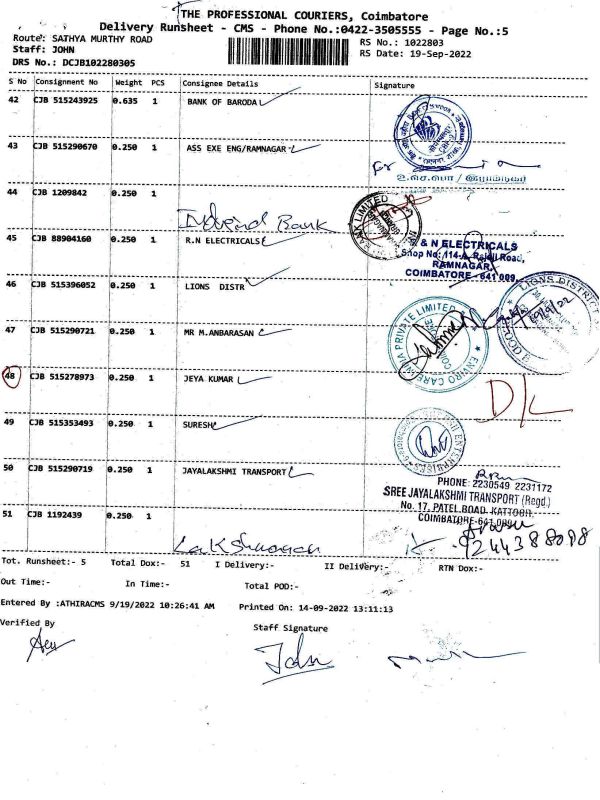 THE PROFESSIONAL COURIERS, Coimbatore
Delivery Runsheet - CMS - Phone No.:0422-3505555 - Page No.:5
Route: SATHYA MURTHY ROAD
RS No.: 1022803
Staff: JOHN
RS Date: 19-Sep-2022
DRS No.: DCJB102280305
S No Consignment No Weight PCS Consignee Details Signature
42 CJB 515243925 0.635 1 BANK OF BARODA
43 CJB 515290670 0.250 1 ASS EXE ENG/RAMNAGAR
for
44 CJB 1209842 0.250 1
Indusind Bank
45 CJB 88904160 0.250 1 R.N ELECTRICALS
& N ELECTRICALS
Shop No: 114-A, Rajaji Road,
RAMNAGAR,
COIMBATORE - 641 009.
46 CJB 515396052 0.250 1 LIONS DISTR
LIONS DISTRICT
47 CJB 515290721 0.250 1 MR M.ANBARASAN
ENVIRO CARE INDIA PRIVATE LIMITED
48 CJB 515278973 0.250 1 JEYA KUMAR
D/L
49 CJB 515353493 0.250 1 SURESH
ENTERPRISES
50 CJB 515290719 0.250 1 JAYALAKSHMI TRANSPORT
PHONE: 2230549 2231172
SREE JAYALAKSHMI TRANSPORT (Regd.)
No. 17, PATEL ROAD, KATTOOR,
COIMBATORE-641 009
51 CJB 1192439 0.250 1
Lakshmanan
9244388098
Tot. Runsheet:- 5 Total Dox:- 51 I Delivery:- II Delivery:- RTN Dox:-
Out Time:- In Time:- Total POD:-
Entered By :ATHIRACMS 9/19/2022 10:26:41 AM Printed On: 14-09-2022 13:11:13
Verified By
Staff Signature
John